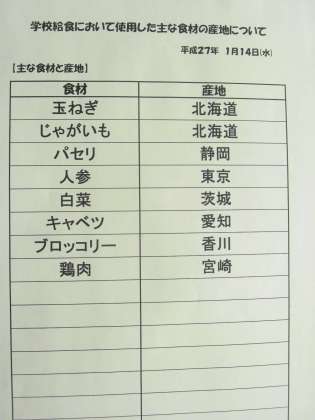 学校給食において使用した主な食材の産地について
平成27年 1月14日(水)
【主な食材と産地】
食材 産地
玉ねぎ 北海道
じゃがいも 北海道
パセリ 静岡
人参 東京
白菜 茨城
キャベツ 愛知
ブロッコリー 香川
鶏肉 宮崎